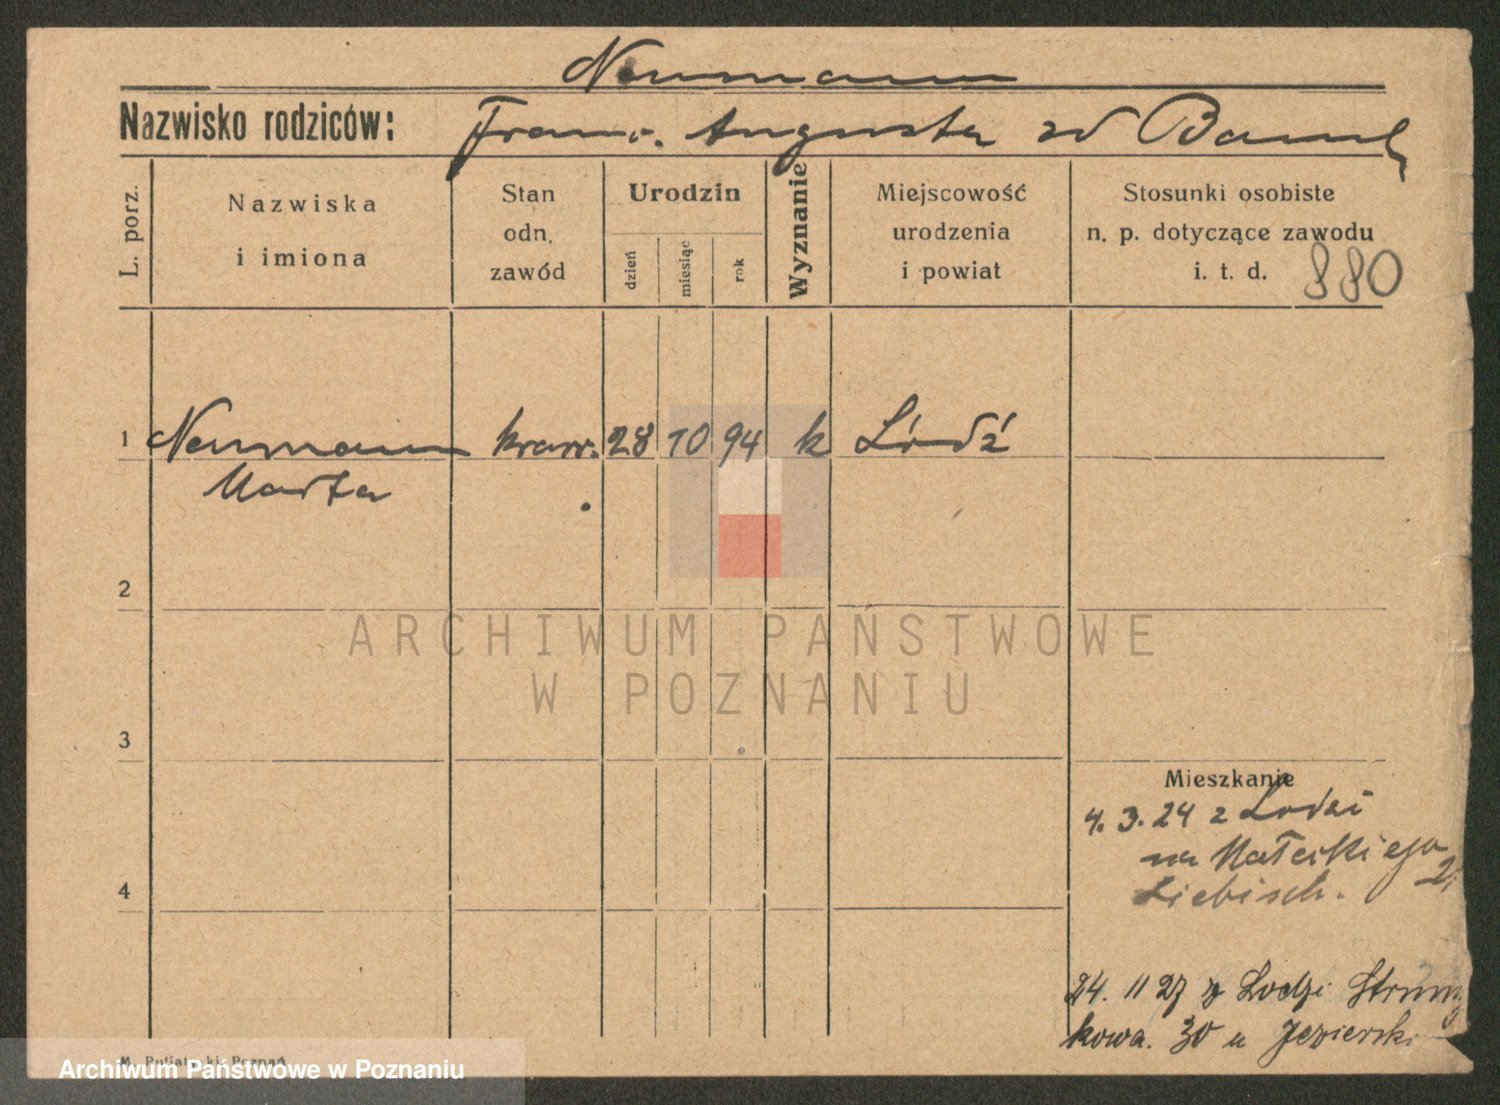 Neumann
Nazwisko rodziców: Franc. Augusta zd Baum
L. porz.
Nazwiska
i imiona
Stan
odn.
zawód
Urodzin
dzień
miesiąc
rok
Wyznanie
Miejscowość
urodzenia
i powiat
Stosunki osobiste
n. p. dotyczące zawodu
i. t. d. 880
1 Neumann kraw. 28 10 94 k Łódź
Marta
2
ARCHIWUM PAŃSTWOWE
W POZNANIU
3
Mieszkanie
4. 3. 24 z Łodzi
na Małeckiego
Liebisch.
4
24. 11 27 z Łodzi Strumy
kowa. 30 u Jezierski
M. Putiatycki, Poznań
Archiwum Państwowe w Poznaniu